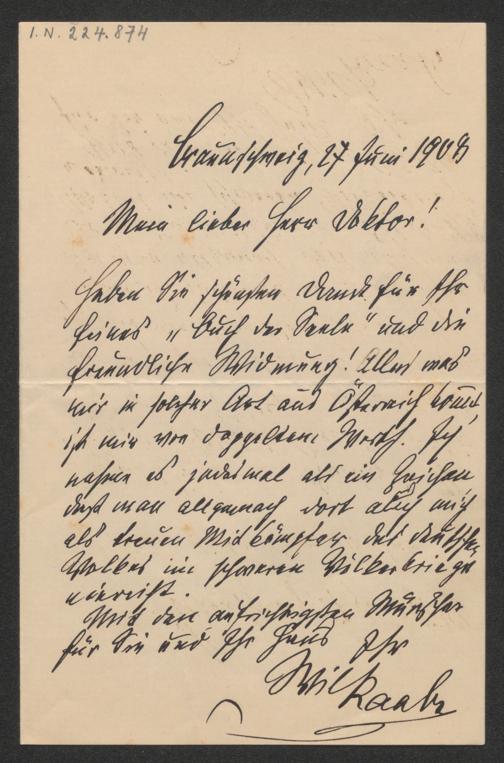 I.N. 224.874
Braunschweig, 27 Juni 1908
Mein lieber Herr Doktor!
Haben Sie schönsten Dank für Ihr
feines „Buch der Seele" und die
freundliche Widmung! Alles was
mir in solcher Art aus Österreich kommt,
ist mir von doppeltem Werth. Ich
nehme es jedesmal als ein Zeichen
daß man allgemach dort auch mich
als treuen Mitkämpfer des deutschen
Volkes im schweren Völkerkriege
einreiht.
Mit den aufrichtigsten Wünschen
für Sie und Ihr Haus
Ihr
Wilh Raabe